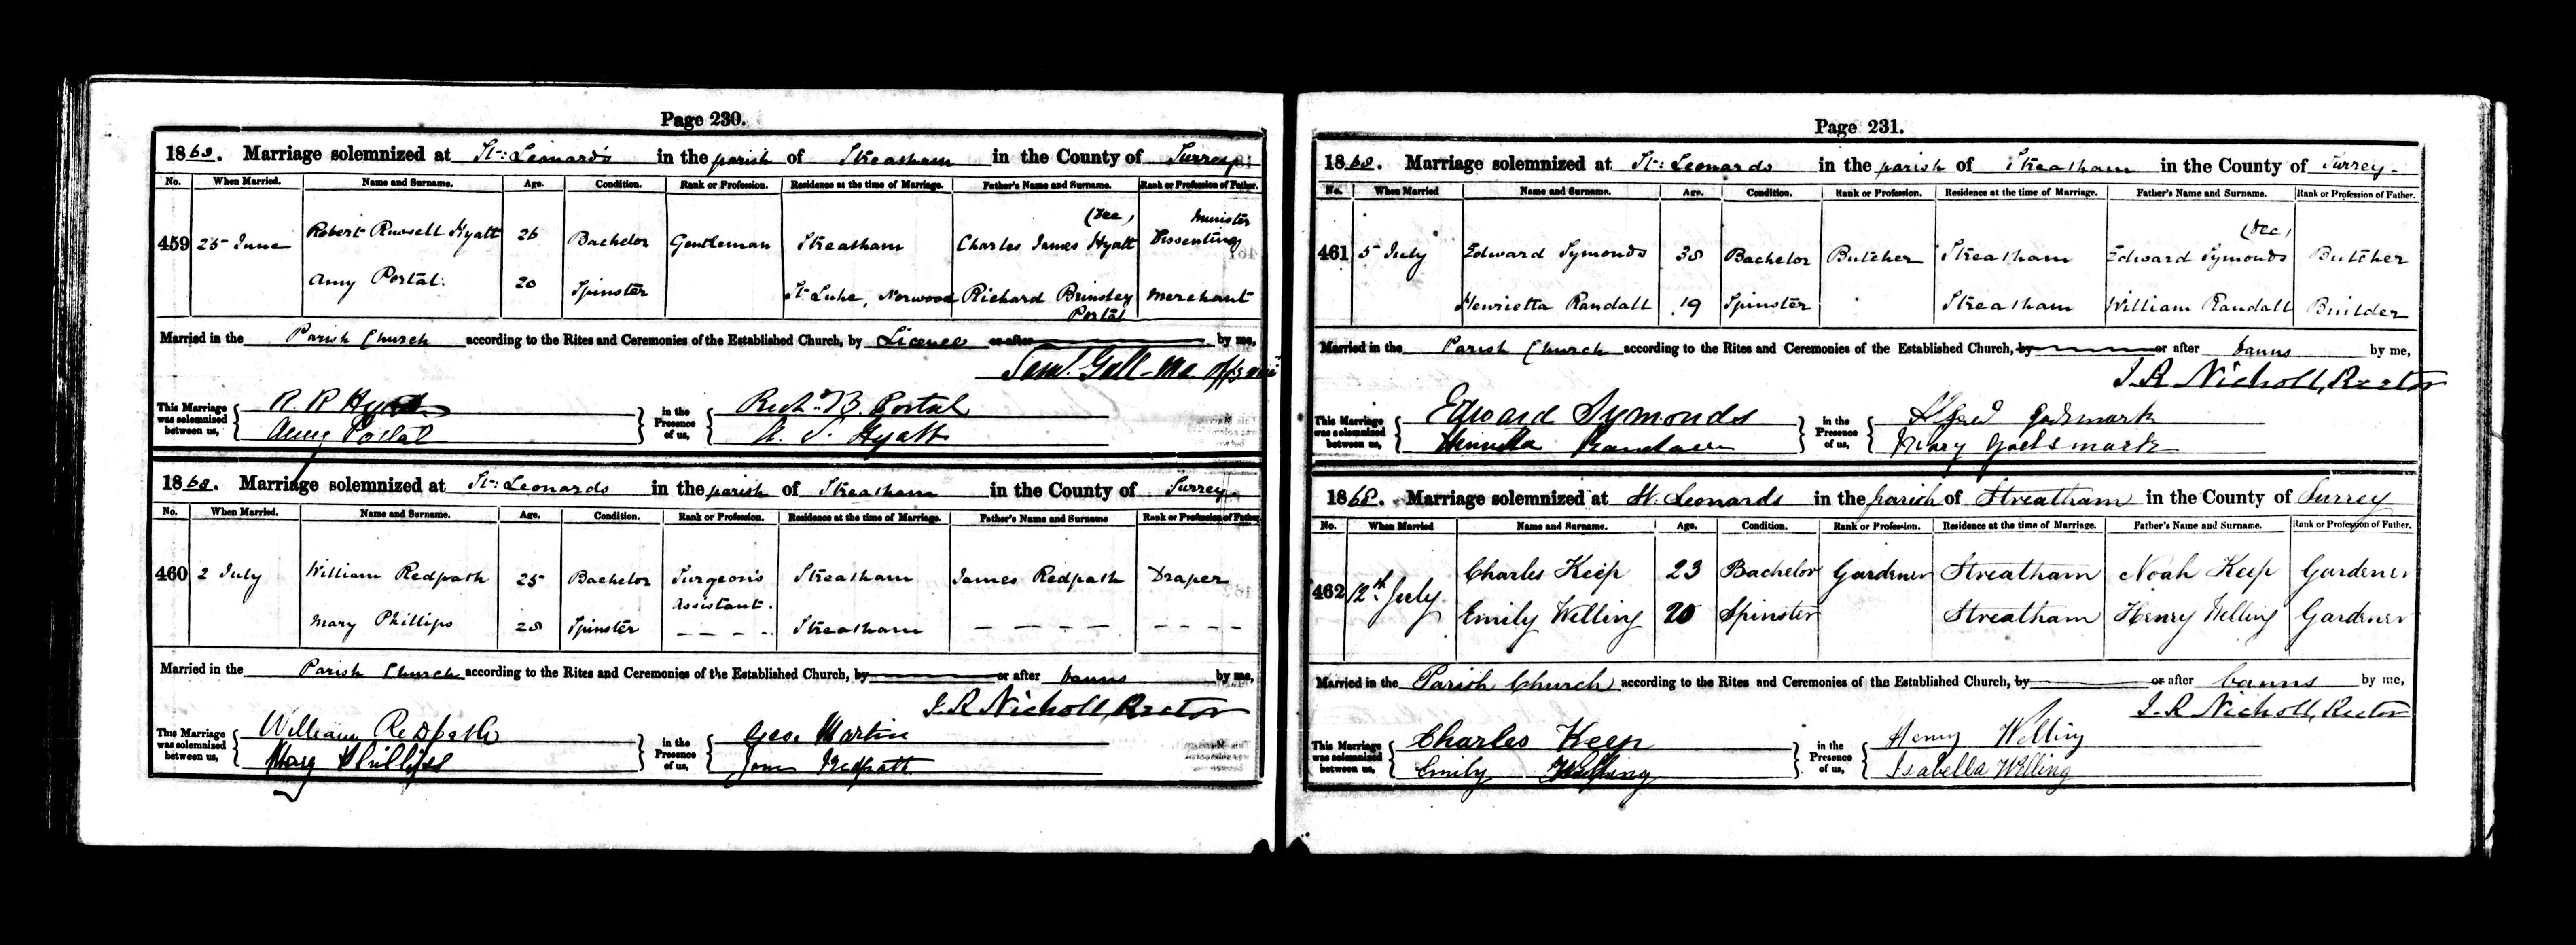 Page 230.
1868. Marriage solemnized at St: Leonards in the parish of Streatham in the County of Surrey
No. When Married. Name and Surname. Age. Condition. Rank or Profession. Residence at the time of Marriage. Father's Name and Surname. Rank or Profession of Father.
(Dec) Minister
459 25 June Robert Russell Hyatt 26 Bachelor Gentleman Streatham Charles James Hyatt Dissenting
Amy Portal. 20 Spinster St Luke, Norwood Richard Brinsley Merchant
Portal
Married in the Parish Church according to the Rites and Ceremonies of the Established Church, by Licence or after by me,
Saml. Gall
This Marriage was solemnized between us, R. R Hyatt in the Presence of us, Richd. B. Portal
Amy Portal Hyatt
1868. Marriage solemnized at St: Leonards in the parish of Streatham in the County of Surrey
No. When Married. Name and Surname. Age. Condition. Rank or Profession. Residence at the time of Marriage. Father's Name and Surname Rank or Profession of Father.
460 2 July William Redpath 25 Bachelor Surgeon's Streatham James Redpath Draper
Assistant.
Mary Phillips 28 Spinster - - - - Streatham - - - - - - - -
Married in the Parish Church according to the Rites and Ceremonies of the Established Church, by or after banns by me,
J. R Nicholl, Rector
This Marriage was solemnized between us, William Redpath in the Presence of us, Geo. Martin
Mary Phillips Redpath
Page 231.
1868. Marriage solemnized at St: Leonards in the parish of Streatham in the County of Surrey-
No. When Married Name and Surname. Age. Condition. Rank or Profession. Residence at the time of Marriage. Father's Name and Surname. Rank or Profession of Father.
(Dec)
461 5 July Edward Symonds 38 Bachelor Butcher Streatham Edward Symonds Butcher
Henrietta Randall 19 Spinster Streatham William Randall Builder
Married in the Parish Church according to the Rites and Ceremonies of the Established Church, by or after banns by me,
J. R Nicholl, Rector
This Marriage was solemnized between us, Edward Symonds in the Presence of us, Alfred Godsmark
Randall Mary Godsmark
1868. Marriage solemnized at St. Leonards in the parish of Streatham in the County of Surrey
No. When Married Name and Surname. Age. Condition. Rank or Profession. Residence at the time of Marriage. Father's Name and Surname. Rank or Profession of Father.
462 12th July Charles Keep 23 Bachelor Gardener Streatham Noah Keep Gardener
Emily Welling 20 Spinster Streatham Henry Welling Gardener
Married in the Parish Church according to the Rites and Ceremonies of the Established Church, by or after banns by me,
J. R Nicholl, Rector
This Marriage was solemnized between us, Charles Keep in the Presence of us, Henry Welling
Emily Welling Isabella Welling